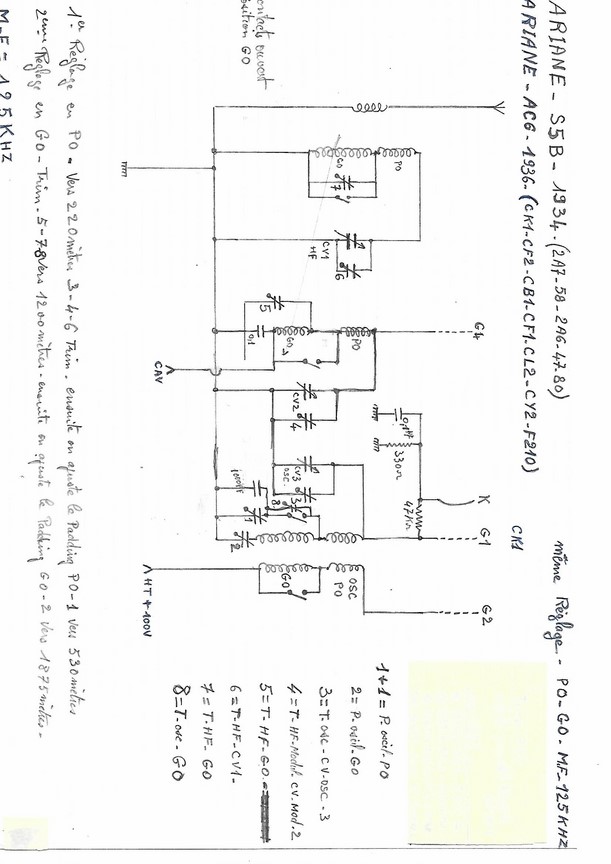 ARIANE - S5B - 1934. (2A7-58-2A6-47-80)
ARIANE - AC6 - 1936. (CK1-CF2-CB1-CF1-CL2-CY2-F210)
même Réglage - PO-GO-MF-125KHZ
CK1
G4
K
G1
G2
PO
GO
7
CV1
HF
6
5
0,1
GO
PO
CAV
CV2
4
0,1µF
330Ω
47KΩ
CV3
OSC.
3
8
1
2
GO
OSC
PO
HT+100V
1+1 = P. oscil. PO
2 = P. oscil. GO
3 = T. osc - CV-OSC - 3
4 = T-HF-Modul. CV. Mod. 2
5 = T-HF-GO.
6 = T-HF-CV1-
7 = T-HF- GO
8 = T-osc - GO
contacts ouvert
position GO
1er Réglage en PO - Vers 220 mètres 3-4-6 Trim. ensuite on ajuste le Padding PO-1 vers 530 mètres
2ème Réglage en GO - Trim. 5-7-8 vers 1200 mètres - ensuite on ajuste le Padding GO-2 vers 1875 mètres -
M.F = 125 KHZ